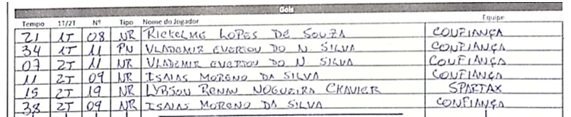 Gols
Tempo 1T/2T Nº Tipo Nome do Jogador Equipe
21 1T 08 NR RICKELME LOPES DE SOUZA CONFIANÇA
34 1T 11 PN VLADEMIR EVERTON DO N SILVA CONFIANÇA
07 2T 11 NR VLADEMIR EVERTON DO N SILVA CONFIANÇA
11 2T 09 NR ISAIAS MORENO DA SILVA CONFIANÇA
15 2T 19 NR RENAN NOGUEIRA CHAVIER SPARTAX
38 2T 09 NR ISAIAS MORENO DA SILVA CONFIANÇA